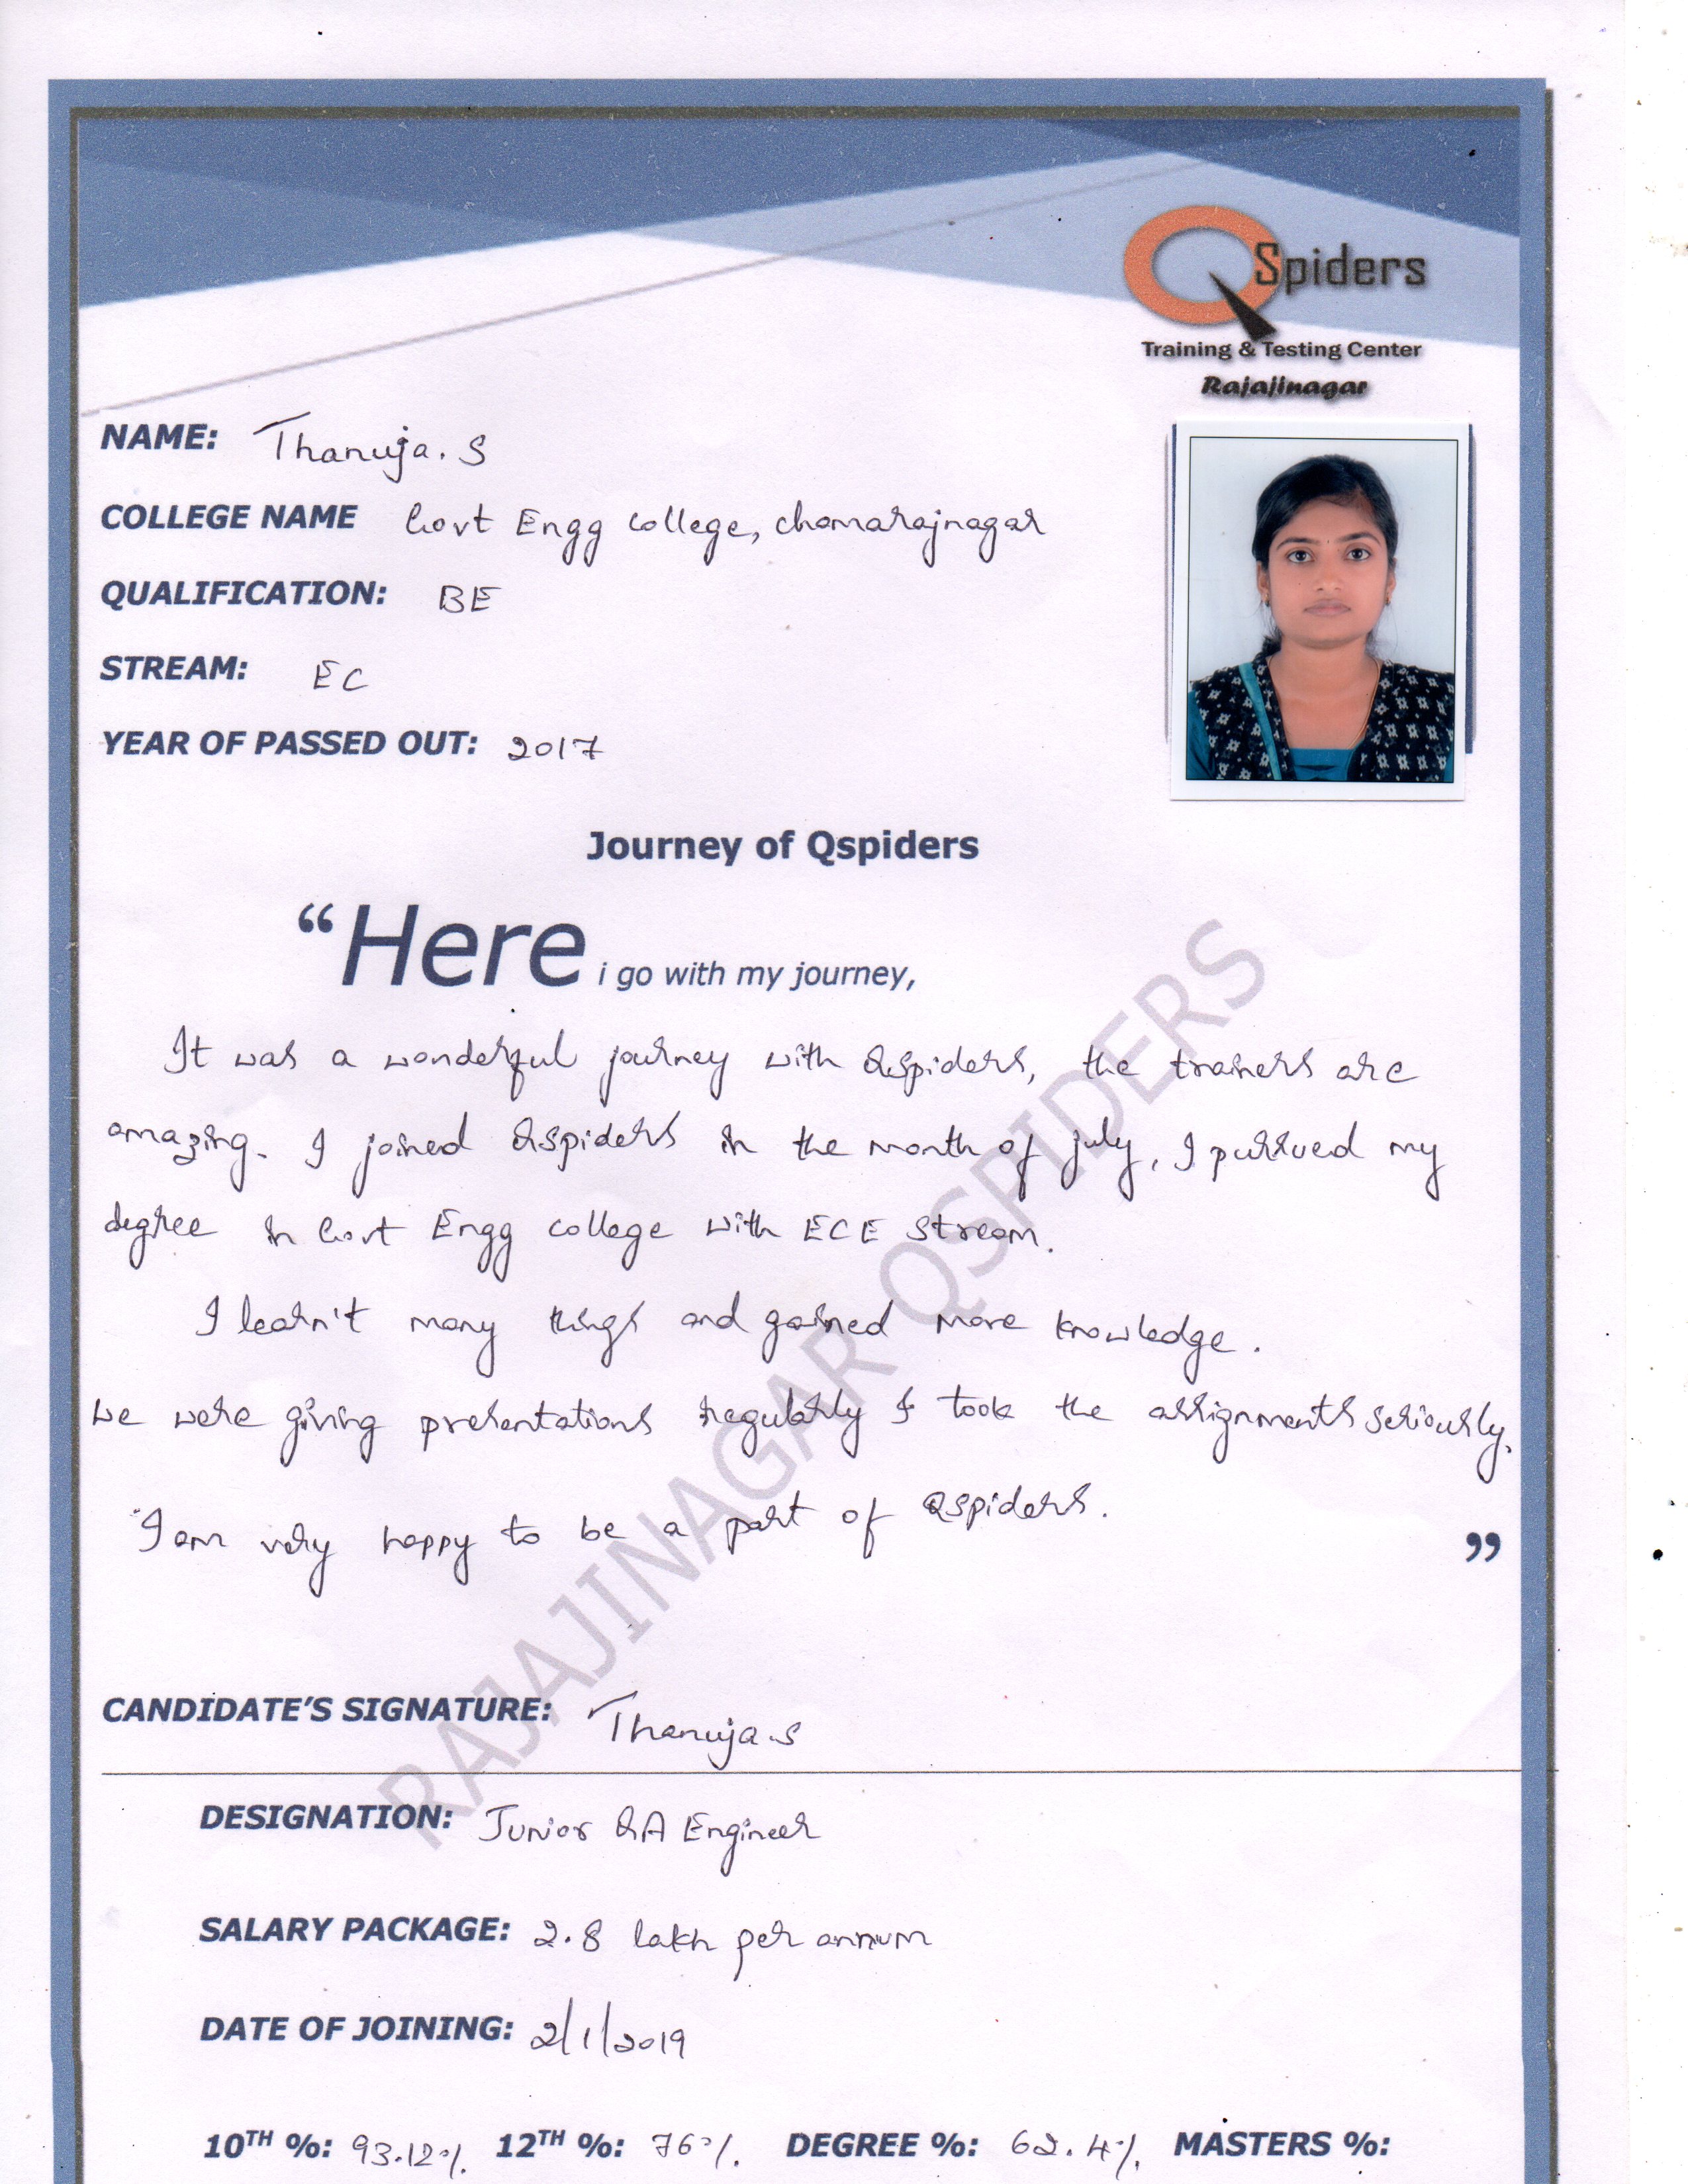 QSpiders
Training & Testing Center
Rajajinagar
NAME: Thanuja. S
COLLEGE NAME Govt Engg college, chamarajnagar
QUALIFICATION: BE
STREAM: EC
YEAR OF PASSED OUT: 2017
Journey of Qspiders
“Here i go with my journey,
It was a wonderful journey with Qspiders, the trainers are
amazing. I joined Qspiders in the month of july, I pursued my
degree in Govt Engg college with ECE Stream.
I learn't many things and gained more knowledge.
We were giving presentations regularly & took the assignments seriously.
I am very happy to be a part of Qspiders.
”
RAJAJINAGAR QSPIDERS
CANDIDATE’S SIGNATURE: Thanuja.S
DESIGNATION: Junior QA Engineer
SALARY PACKAGE: 2.8 lakh per annum
DATE OF JOINING: 2/1/2019
10TH %: 93.12%. 12TH %: 76%. DEGREE %: 62.4%. MASTERS %: